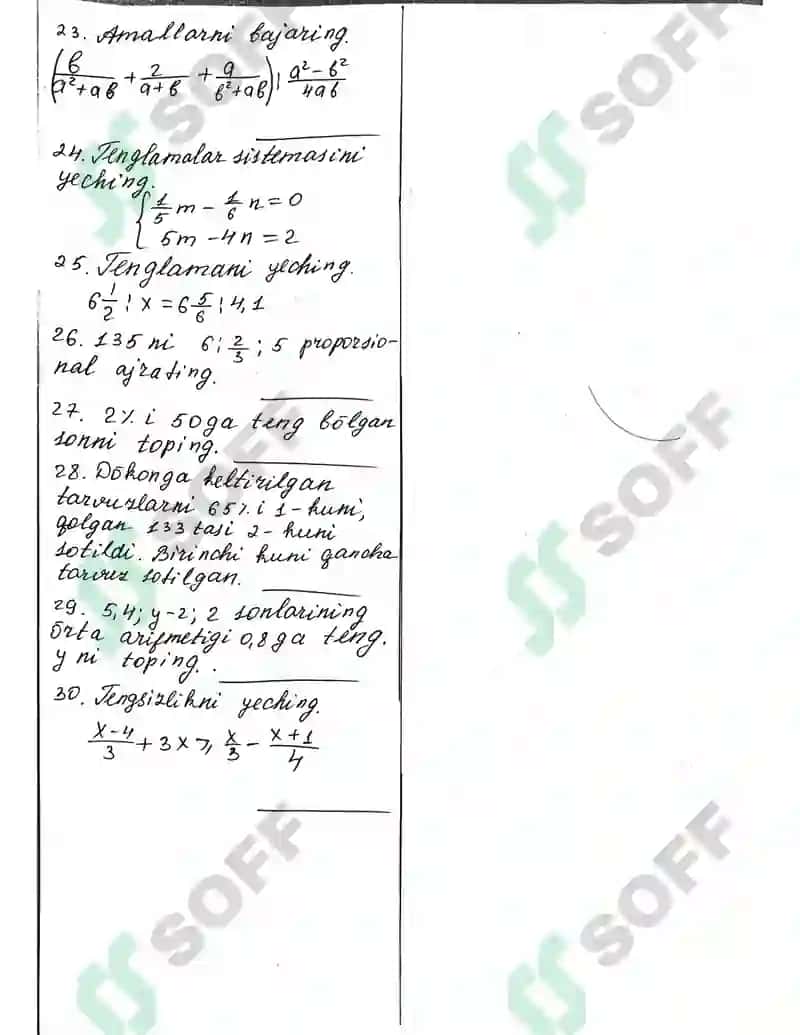 23. Amallarni bajaring.
(b/(a²+ab) + 2/(a+b) + a/(b²+ab)) : (a²-b²)/4ab
24. Tenglamalar sistemasini
yeching.
{ 1/5 m - 1/6 n = 0
5m - 4n = 2
25. Tenglamani yeching.
6 1/2 : x = 6 5/6 : 4,1
26. 135 ni 6; 2/3; 5 proporsio-
nal ajrating.
27. 2% i 50ga teng bōlgan
sonni toping.
28. Dōkonga keltirilgan
tarvuzlarni 65% i 1-kuni,
qolgan 133 tasi 2-kuni
sotildi. Birinchi kuni qancha
tarvuz sotilgan.
29. 5,4; y-2; 2 sonlarining
ōrta arifmetigi 0,8ga teng.
y ni toping.
30. Tengsizlikni yeching.
(x-4)/3 + 3x ⩾ x/3 - (x+1)/4
SOFF
SOFF
SOFF
SOFF
SOFF
SOFF